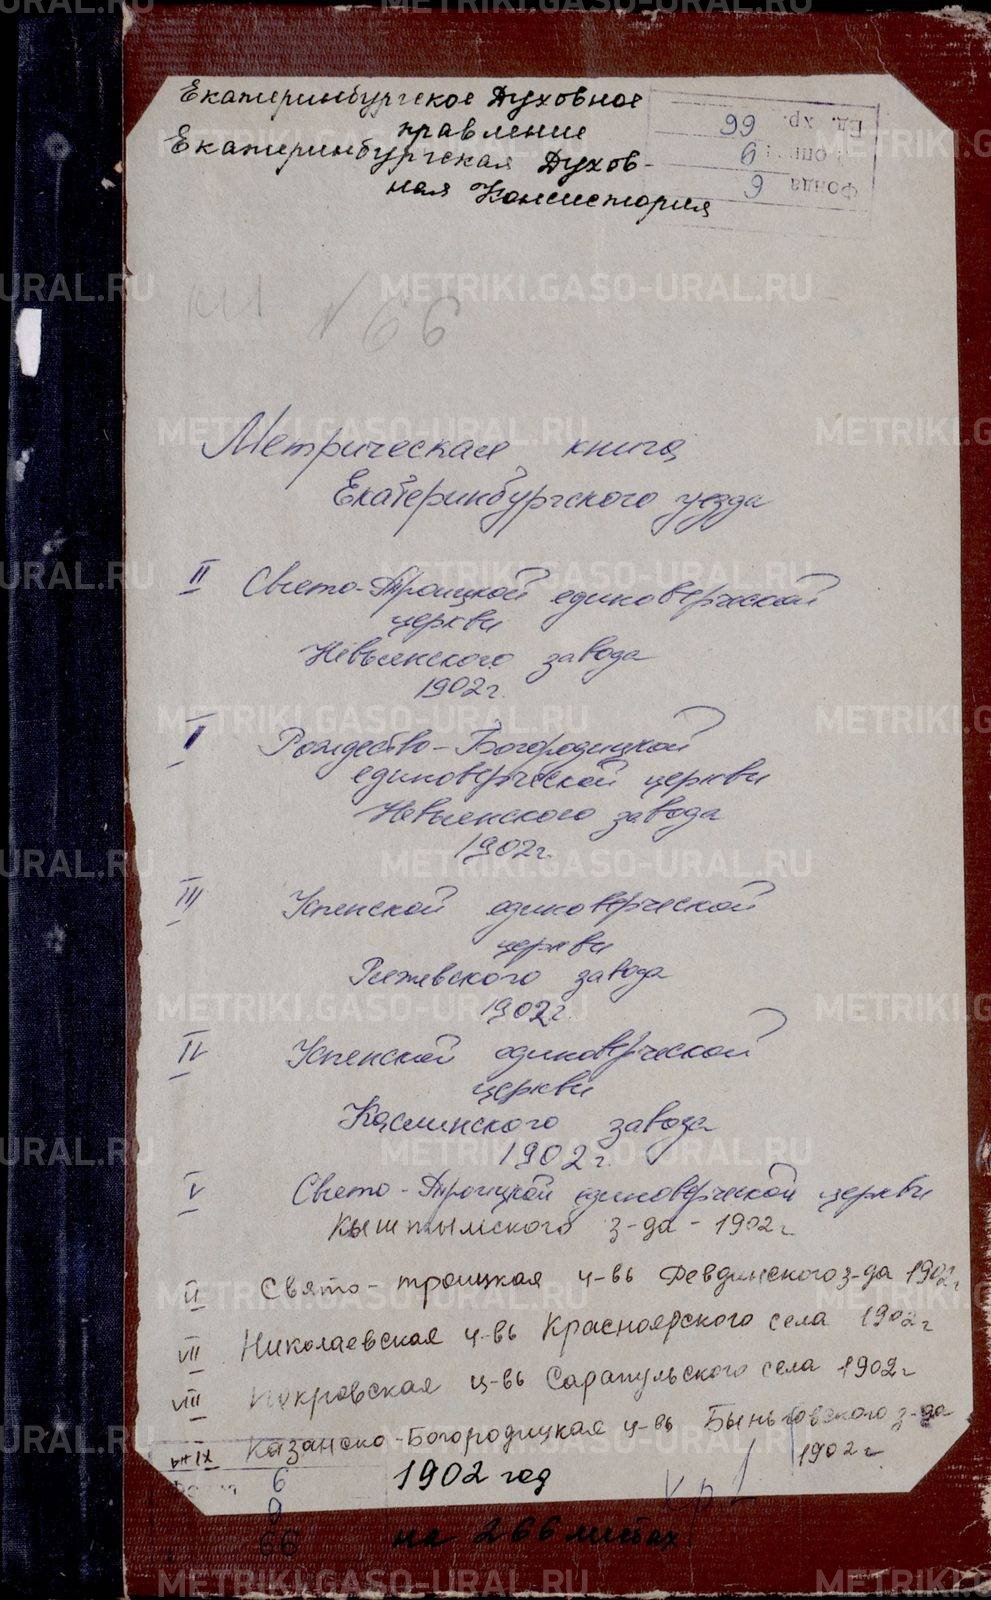 Екатеринбургское Духовное
правление
Екатеринбургская Духов-
ная Консистория
Ед. хр. 66
опись 9
Фонда 6
№ 66
Метрическая книга
Екатеринбургского уезда
II Свято-Троицкой единоверческой
церкви
Невьянского завода
1902 г.
I Рождество-Богородицкой
единоверческой церкви
Невьянского завода
1902 г.
III Успенской единоверческой
церкви
Режевского завода
1902 г.
IV Успенской единоверческой
церкви
Каслинского завода
1902 г.
V Свято-Троицкой единоверческой церкви
Кыштымского з-да - 1902 г
Свято-троицкая ц-вь Ревдинского з-да 1902 г
VII Николаевская ц-вь Красноярского села 1902 г
VIII Покровская ц-вь Сарапульского села 1902 г
IX Казанско-Богородицкая ц-вь Быньговского з-да
1902 г
6
1902 год
9
66
на 266 листах
METRIKI.GASO-URAL.RU